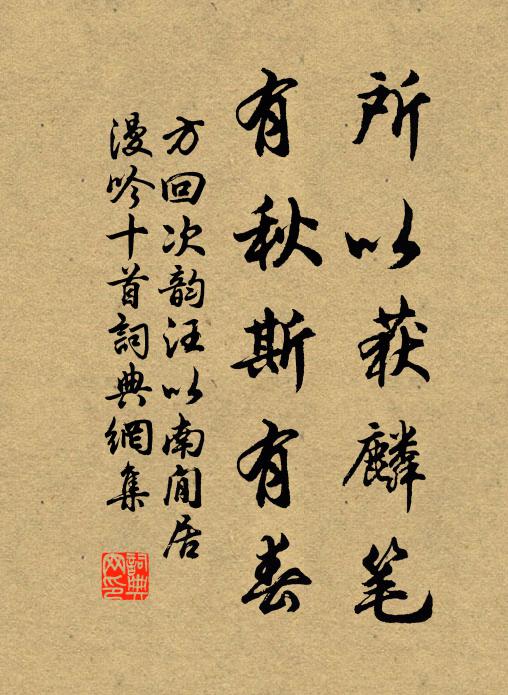 所以获麟笔
有秋斯有春
方回次韵汪以南闲居
漫吟十首詞典網集
詞典网印